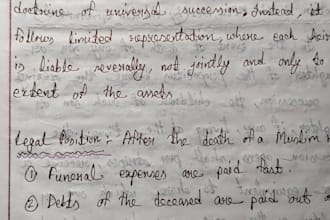 doctrine of universal succession; Instead, it
follows limited representation, where each heir
is liable severally, not jointly and only to
extent of the assets
Legal Position: After the death of a Muslim
① Funeral expenses are paid first.
② Debts of the deceased are paid out